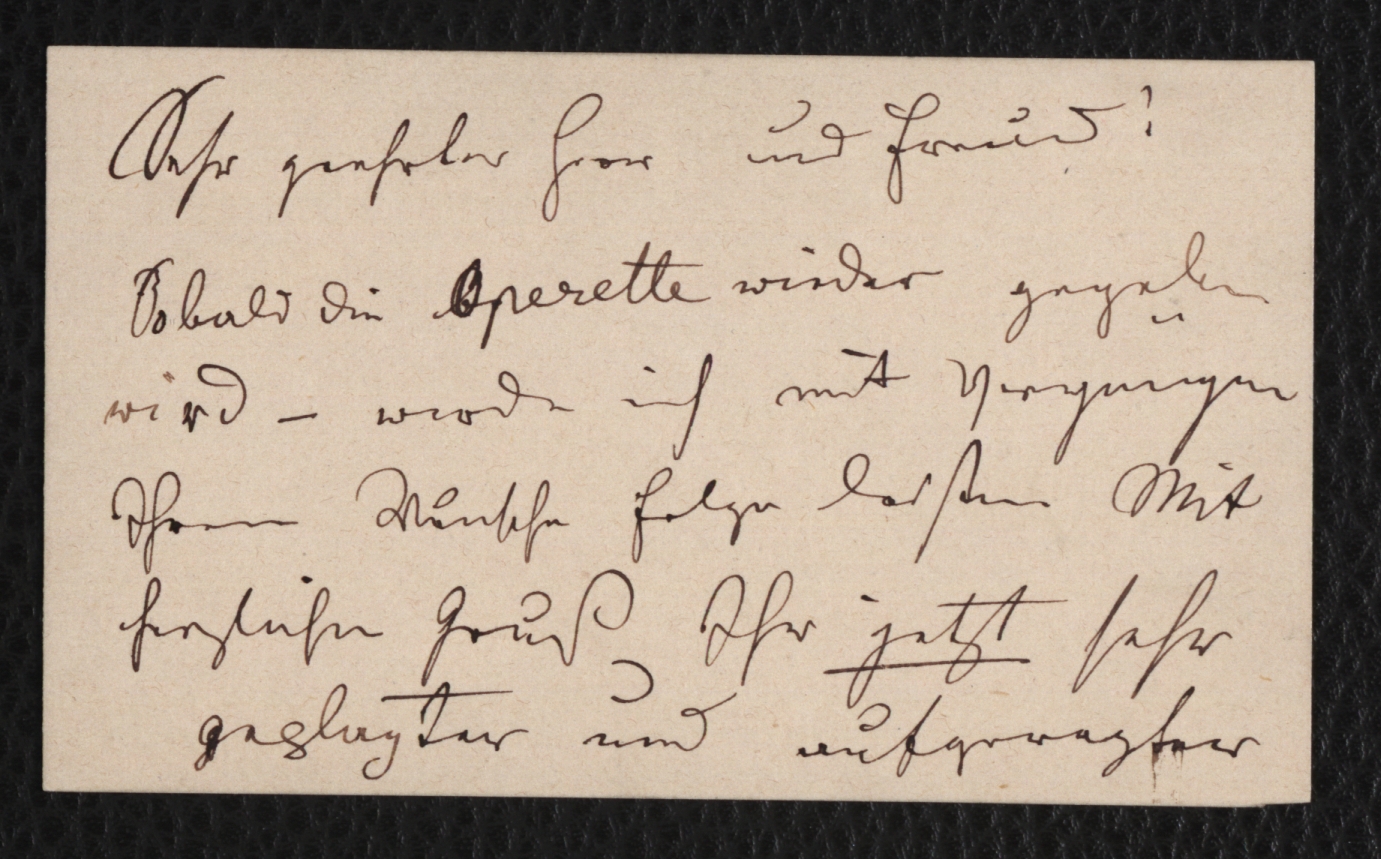 Sehr geehrter Herr und Freund!
Sobald die Operette wieder gegeben
wird – werde ich mit Vergnügen
Ihrem Wunsche Folge leisten Mit
herzlichen Gruß Ihr jetzt sehr
geplagter und aufgeregter